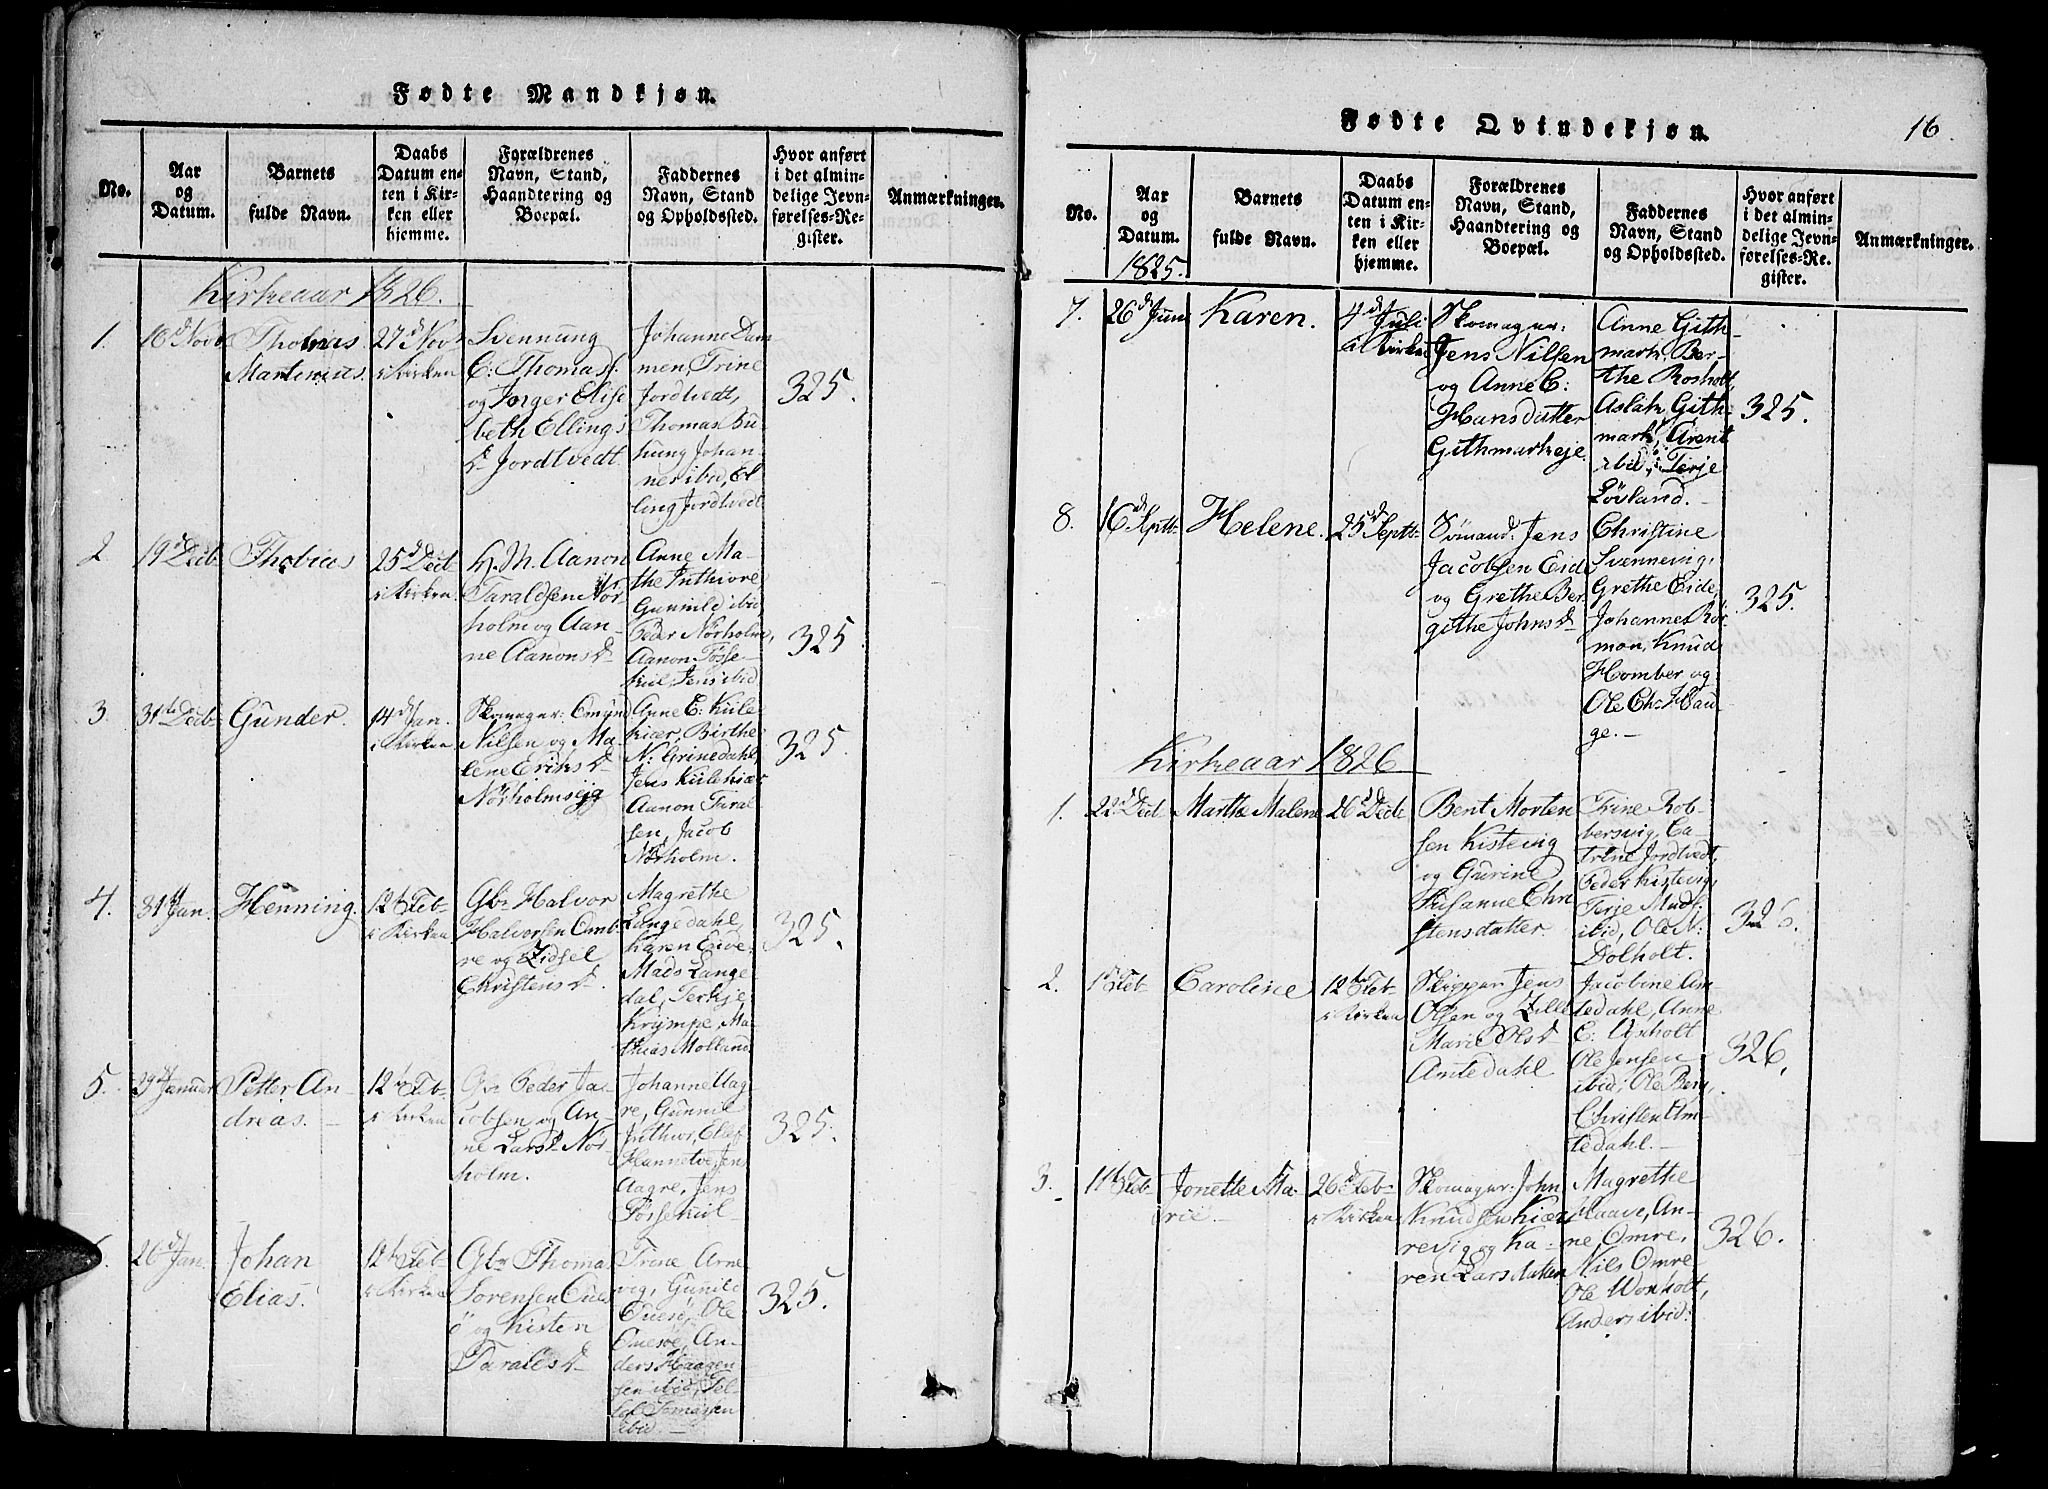 Fødte Mandkjøn.
No.
Aar
og
Datum.
Barnets
fulde Navn.
Daabs
Datum en-
ten i Kir-
ken eller
hjemme.
Forældrenes
Navn, Stand,
Haandtering og
Boepæl.
Faddernes
Navn, Stand
og Opholdssted.
Hvor anført
i det almin-
delige Jevn-
førelses-Re-
gister.
Anmærkninger.
Kirkeaar 1826.
1.
16d Novb
Thobias
Martinius.
27d Novb
i Kirken
Svennung
C: Thomass.
og Jorger Elise
beth Ellings
D. Jordtvedt.
Johanne Dam
men, Trine
Jordtvedt,
Thomas Bu-
kung Johan-
nes ibid, El
ling Jordtvedt
325.
2
19d Decb
Thobias
25d Decb
i Kirken.
H. M. Aanon
Taraldsen Nør-
holm og Aan-
ne Aanons D.
Anne Ma-
the Inthiore
Gunnild ibid
Peder Nørholm,
Aanon Fosse-
kiil, Jens ibid
325
3.
31te Decb
Gunder.
14d Jan.
i Kirken
Skomager: Omund
Nilsen og Ma-
lene Eriks D.
Nørholmseje
Anne E: Kule
kiær, Birthe
N: Grinedahl,
Jens Kulekiær
Aanon Taral
sen, Jacob
Nørholm.
325.
4.
31d Jan.
Henning.
12te Feb-
i Kirken
Gbr Halvor
Halvorsen Omb.
re og Zidsel
Christens D.
Magrethe
Langedahl,
Karen Eive-
Mads Lange
dal, Terkje
Krympe, Ma-
thias Molland.
325.
5.
29d Januar
Petter An-
dreas.
12te Feb-
i Kirken
Gbr Peder Ja-
cobsen og An-
ne Lars D. Nør-
holm.
Johanne Aag-
re, Gunnil
Inthior, Ellef
Hannetve, Jens
Aagre, Jens
Fosse kiil
325.
6.
26d Jan.
Johan
Elias.
12te Feb-
i Kirken
Gbr Thomas
Sørensen Ques
ö og Kisten
Taralds D.
Trine Arne
vig, Gunild
Quesø, Ole
Quesöe, An-
ders Haagen
sen ibid, Sel-
lef Tomassen
ibid.
325.
Fødte Qvindekjøn.
16.
No.
Aar
og
Datum.
1825.
Barnets
fulde Navn.
Daabs
Datum en-
ten i Kir-
ken eller
hjemme.
Forældrenes
Navn, Stand,
Haandtering og
Boepæl.
Faddernes
Navn, Stand
og Opholdssted.
Hvor anført
i det almin-
delige Jevn-
førelses-Re-
gister.
Anmærkninger.
7.
26d Juni
Karen.
4d Juli
i Kirken
Skomager:
Jens Nilsen
og Anne C:
Hansdatter
Githmarkeje.
Anne Gith-
mark, Ber-
the Rosholt,
Aslak Gith-
mark, Arent
ibid, Terje
Lövland.
325.
8.
16d Septb.
Helene.
25d Septb.
Sömand: Jens
Jacobsen Eide
og Grethe Ber
githe Johns D.
Christine
Svennevig,
Grethe Eide,
Johannes Rör
mon, Knud
Homber og
Ole Chr Hau-
ge.
325.
Kirkeaar 1826
1.
22d Decb
Marthe Malene
26d Decb
Bent Morten
sen Kistevig
og Gurine
Susanne Chri
stensdatter.
Trine Rob-
bersvig, Ca-
trine Jordtvedt,
Peder Kistevig,
Terje Mads.
ibid, Ole N:
Dolholt.
326.
2.
1ste Feb
Caroline
12te Feb
i Kirken
Skipper Jens
Olsen og Zille
Marie Ols D.
Amtedahl
Jacobine Am
tedahl, Anne
E: Voxholt
Ole Jensen
ibid, Ole Berg,
Christen Am-
tedahl.
326.
3.
11te Feb
Jonette Ma-
rie.
26d Feb-
i Kirken
Skomager: John
Knudsen Kiær
revig og Ka-
ren Larsdatter
Magrethe
Haave, An-
ne Omre,
Nils Omre
Ole Woxholt,
Anders ibid:
326.